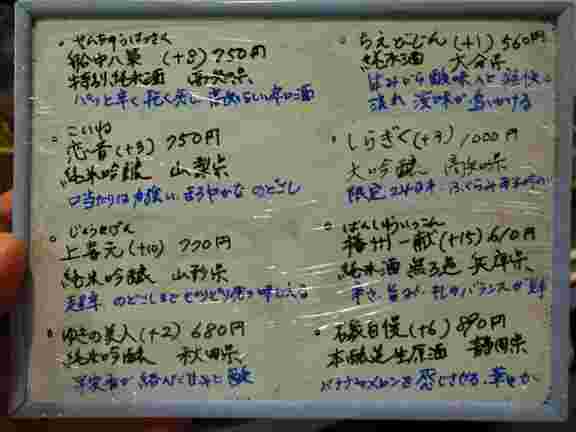 せんちゅうはっさく
船中八策 (+8) 750円
特別純米酒 高知県
パッと辛く
こいね
恋音 (+3) 750円
純米吟醸 山梨県
口当たりは力強い、まろやかな のどごし
じょうきげん
上喜元 (+10) 770円
純米吟醸 山形県
のどごしまで
ゆきの美人 (+2) 680円
純米吟醸 秋田県
ちえびじん (+1) 560円
純米酒 大分県
甘みから酸味へと
流れ 渋味が追いかける
しらぎく (+3) 1000円
大吟醸 高知県
限定
ばんしゅういっこん
播州一献 (+15) 610円
純米酒 無ろ過 兵庫県
辛さ、旨み、のバランスが
磯自慢 (+6) 890円
本醸造生原酒 静岡県
バナナやメロンを感じさせる、華やか